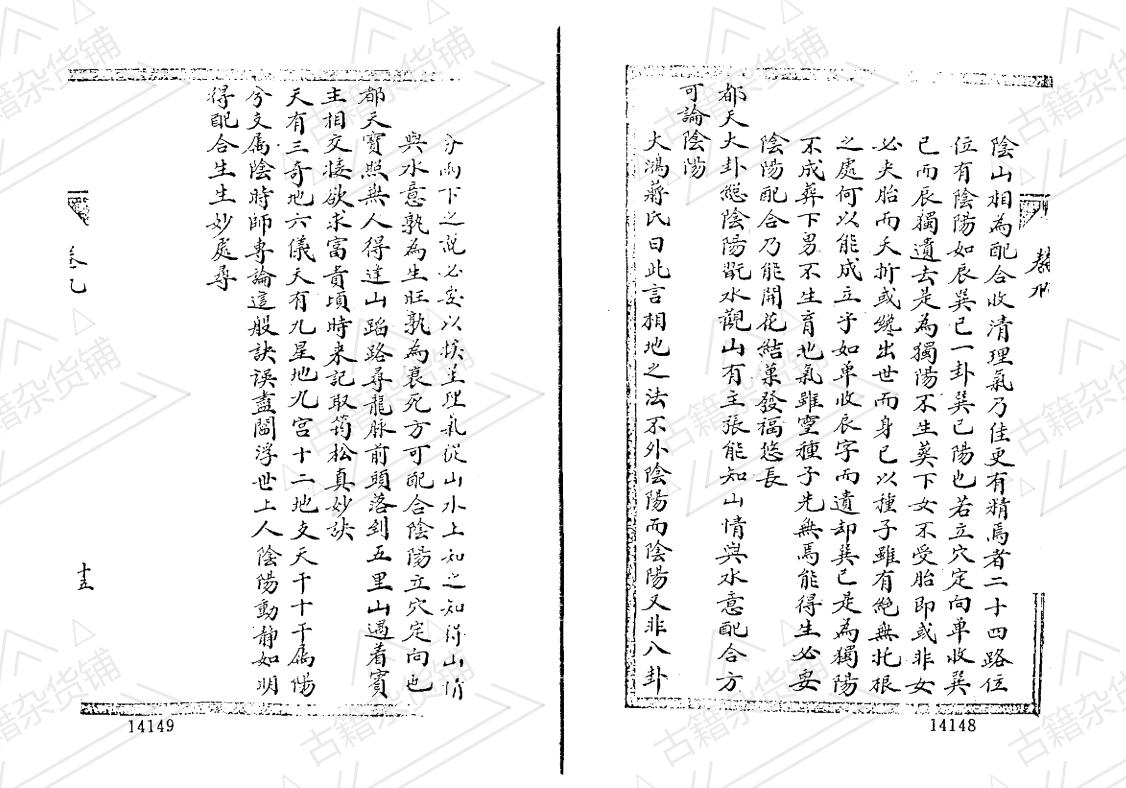 陰山相為配合收清理氣乃佳更有精焉者二十四路位
位有陰陽如辰巽巳一卦巽巳陽也若立穴定向單收巽
巳而辰獨遺去是為獨陽不生葬下女不受胎即或非女
必夫胎而夭折或纔出世而身已以種子雖有絕無托根
之處何以能成立乎如單收辰字而遺却巽巳是為獨陽
不成葬下男不生育地氣雖靈種子先無焉能得生必要
陰陽配合乃能開花結菓發福悠長
都天大卦總陰陽翫水觀山有主張能知山情與水意配合方
可論陰陽
大鴻蔣氏曰此言相地之法不外陰陽而陰陽又非八卦
14148
兩下之說必要以挨星理氣從山水上知之知得山情
與水意孰為生旺孰為衰死方可配合陰陽立穴定向也
都天寶照無人得逹山踏路尋龍脉前頭落到五里山遇着賓
主相交接欲求富貴頃時来記取筠松真妙訣
天有三奇地六儀天有九星地九宮十二地支天干十干屬陽
兮支屬陰時師專論這般訣誤盡閻浮世上人陰陽動靜如明
得配合生生妙處尋
卷九
十五
14149
古籍杂货铺